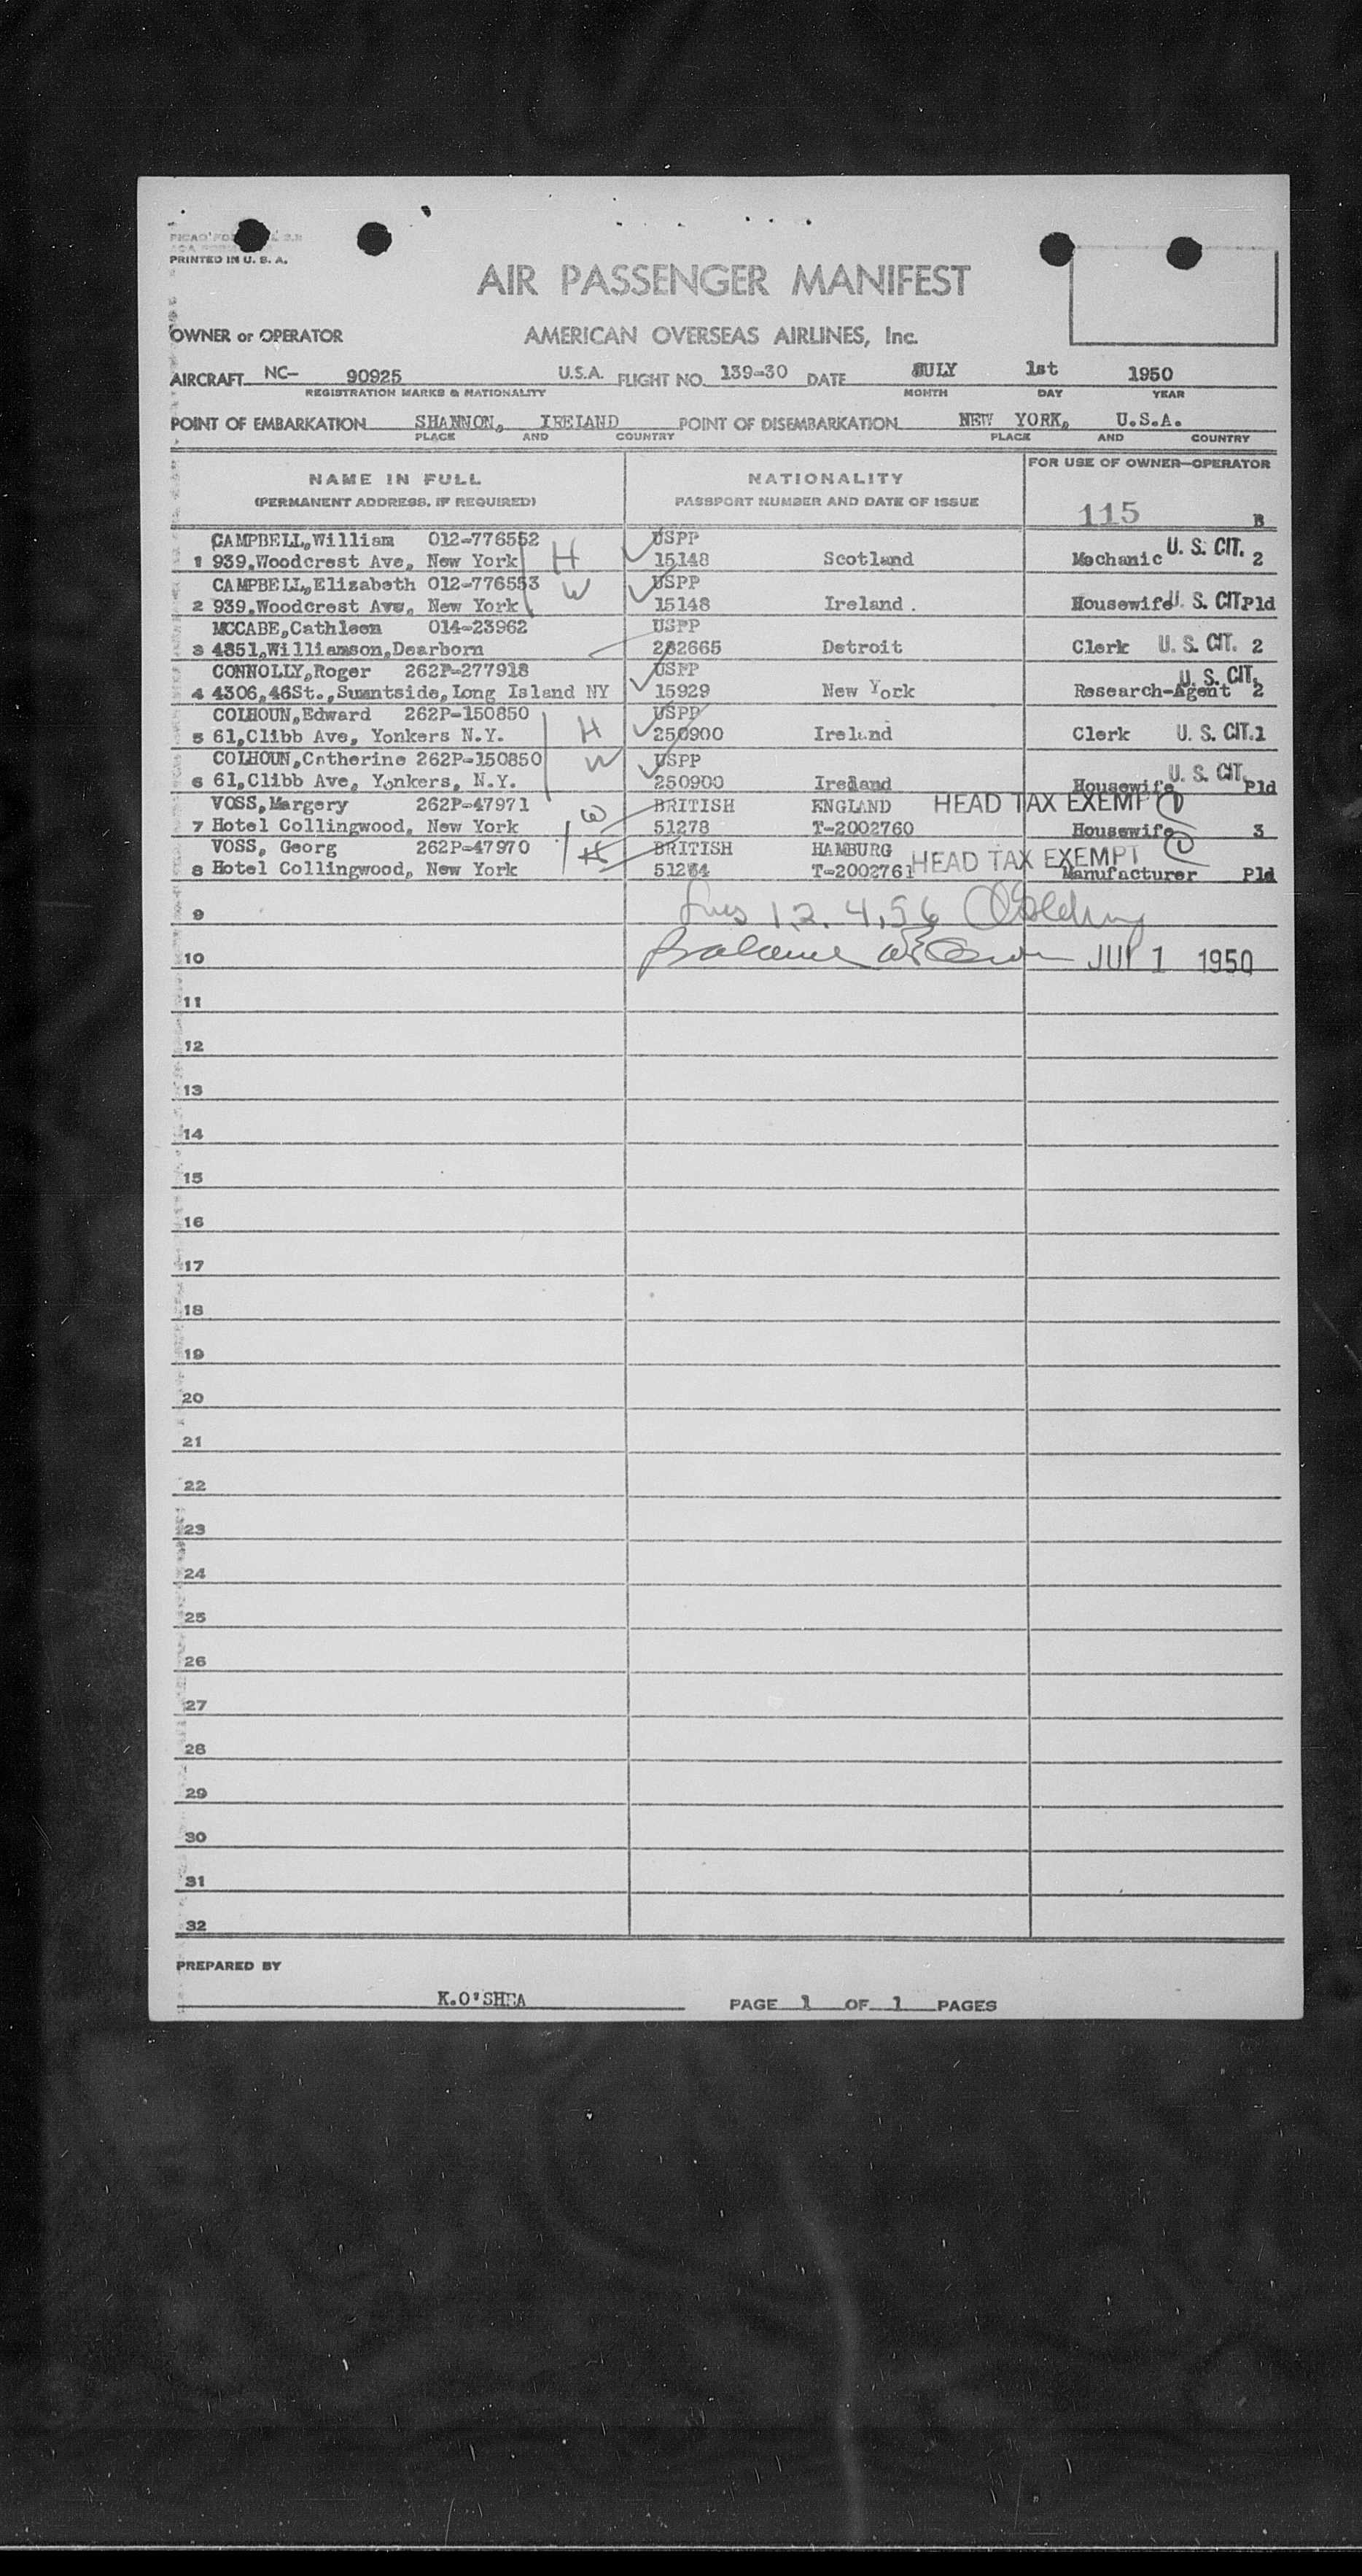 PRINTED IN U. S. A.
AIR PASSENGER MANIFEST
OWNER or OPERATOR AMERICAN OVERSEAS AIRLINES, Inc.
AIRCRAFT NC- 90925 U.S.A. FLIGHT NO. 139-30 DATE JULY 1st 1950
REGISTRATION MARKS & NATIONALITY MONTH DAY YEAR
POINT OF EMBARKATION SHANNON, IRELAND POINT OF DISEMBARKATION NEW YORK, U.S.A.
PLACE AND COUNTRY PLACE AND COUNTRY
NAME IN FULL NATIONALITY FOR USE OF OWNER-OPERATOR
(PERMANENT ADDRESS, IF REQUIRED) PASSPORT NUMBER AND DATE OF ISSUE 115 B
CAMPBELL,William 012-776552 H USPP
1 939,Woodcrest Ave, New York 15148 Scotland Mechanic U. S. CIT. 2
CAMPBELL,Elizabeth 012-776553 W USPP
2 939,Woodcrest Ave, New York 15148 Ireland. Housewife U. S. CIT Pld
MCCABE,Cathleen 014-23962 USPP
3 4851,Williamson,Dearborn 282665 Detroit Clerk U. S. CIT. 2
CONNOLLY,Roger 262P-277918 USPP
4 4306,46St.,Sunntside,Long Island NY 15929 New York Research-Agent U. S. CIT. 2
COLHOUN,Edward 262P-150850 H USPP
5 61,Clibb Ave, Yonkers N.Y. 250900 Ireland Clerk U. S. CIT.1
COLHOUN,Catherine 262P-150850 W USPP
6 61,Clibb Ave, Yonkers, N.Y. 250900 Ireland Housewife U. S. CIT. Pld
VOSS,Margery 262P-47971 W BRITISH ENGLAND HEAD TAX EXEMPT
7 Hotel Collingwood, New York 51278 T-2002760 Housewife 3
VOSS, Georg 262P-47970 H BRITISH HAMBURG HEAD TAX EXEMPT
8 Hotel Collingwood, New York T-2002761 Manufacturer Pld
9 1, 2, 4, 5 6
10 Balance JUL 1 1950
11
12
13
14
15
16
17
18
19
20
21
22
23
24
25
26
27
28
29
30
31
32
PREPARED BY
K.O'SHEA PAGE 1 OF 1 PAGES